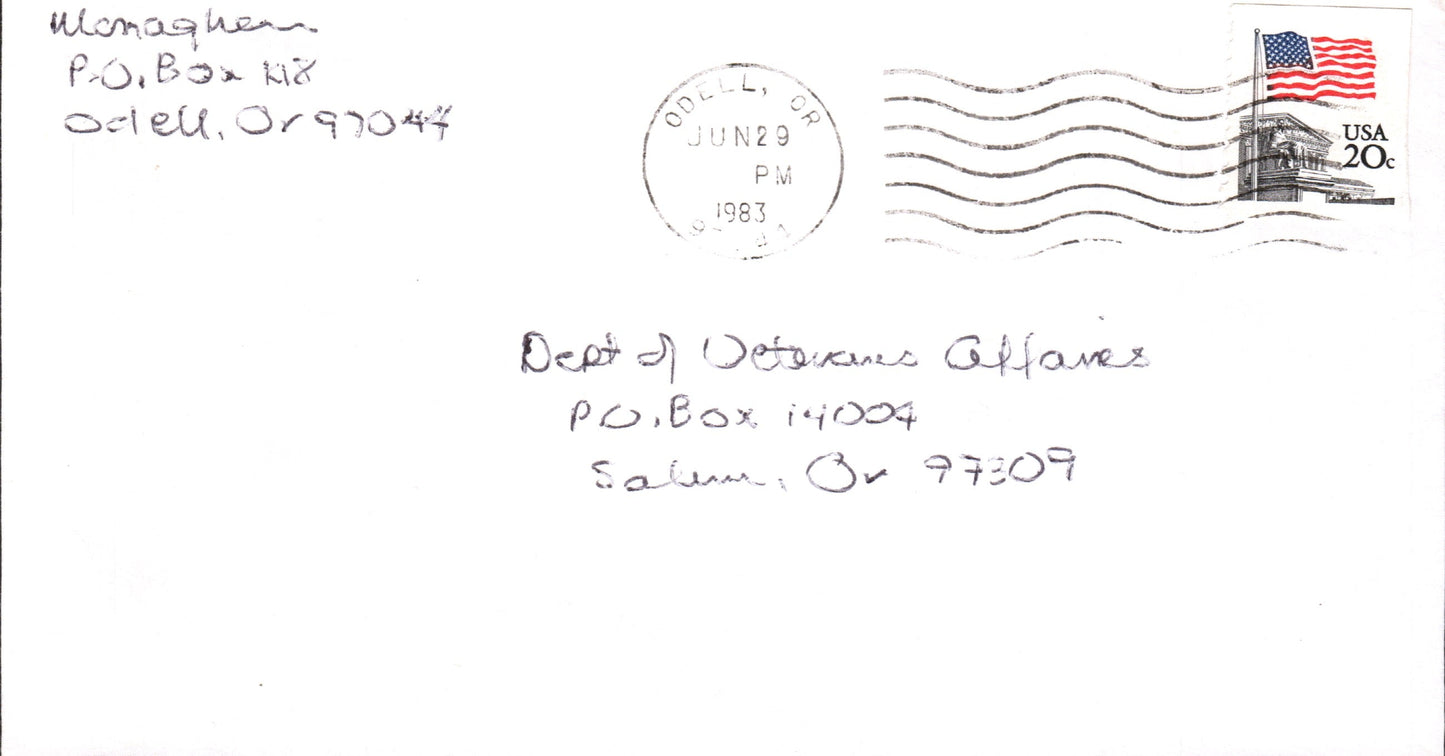 Monaghan
P.O. Box 118
Odell, Or 97044
ODELL, OR
JUN 29
PM
1983
USA
20c
Dept of Veterans Affairs
P.O. Box 14004
Salem, Or 97309